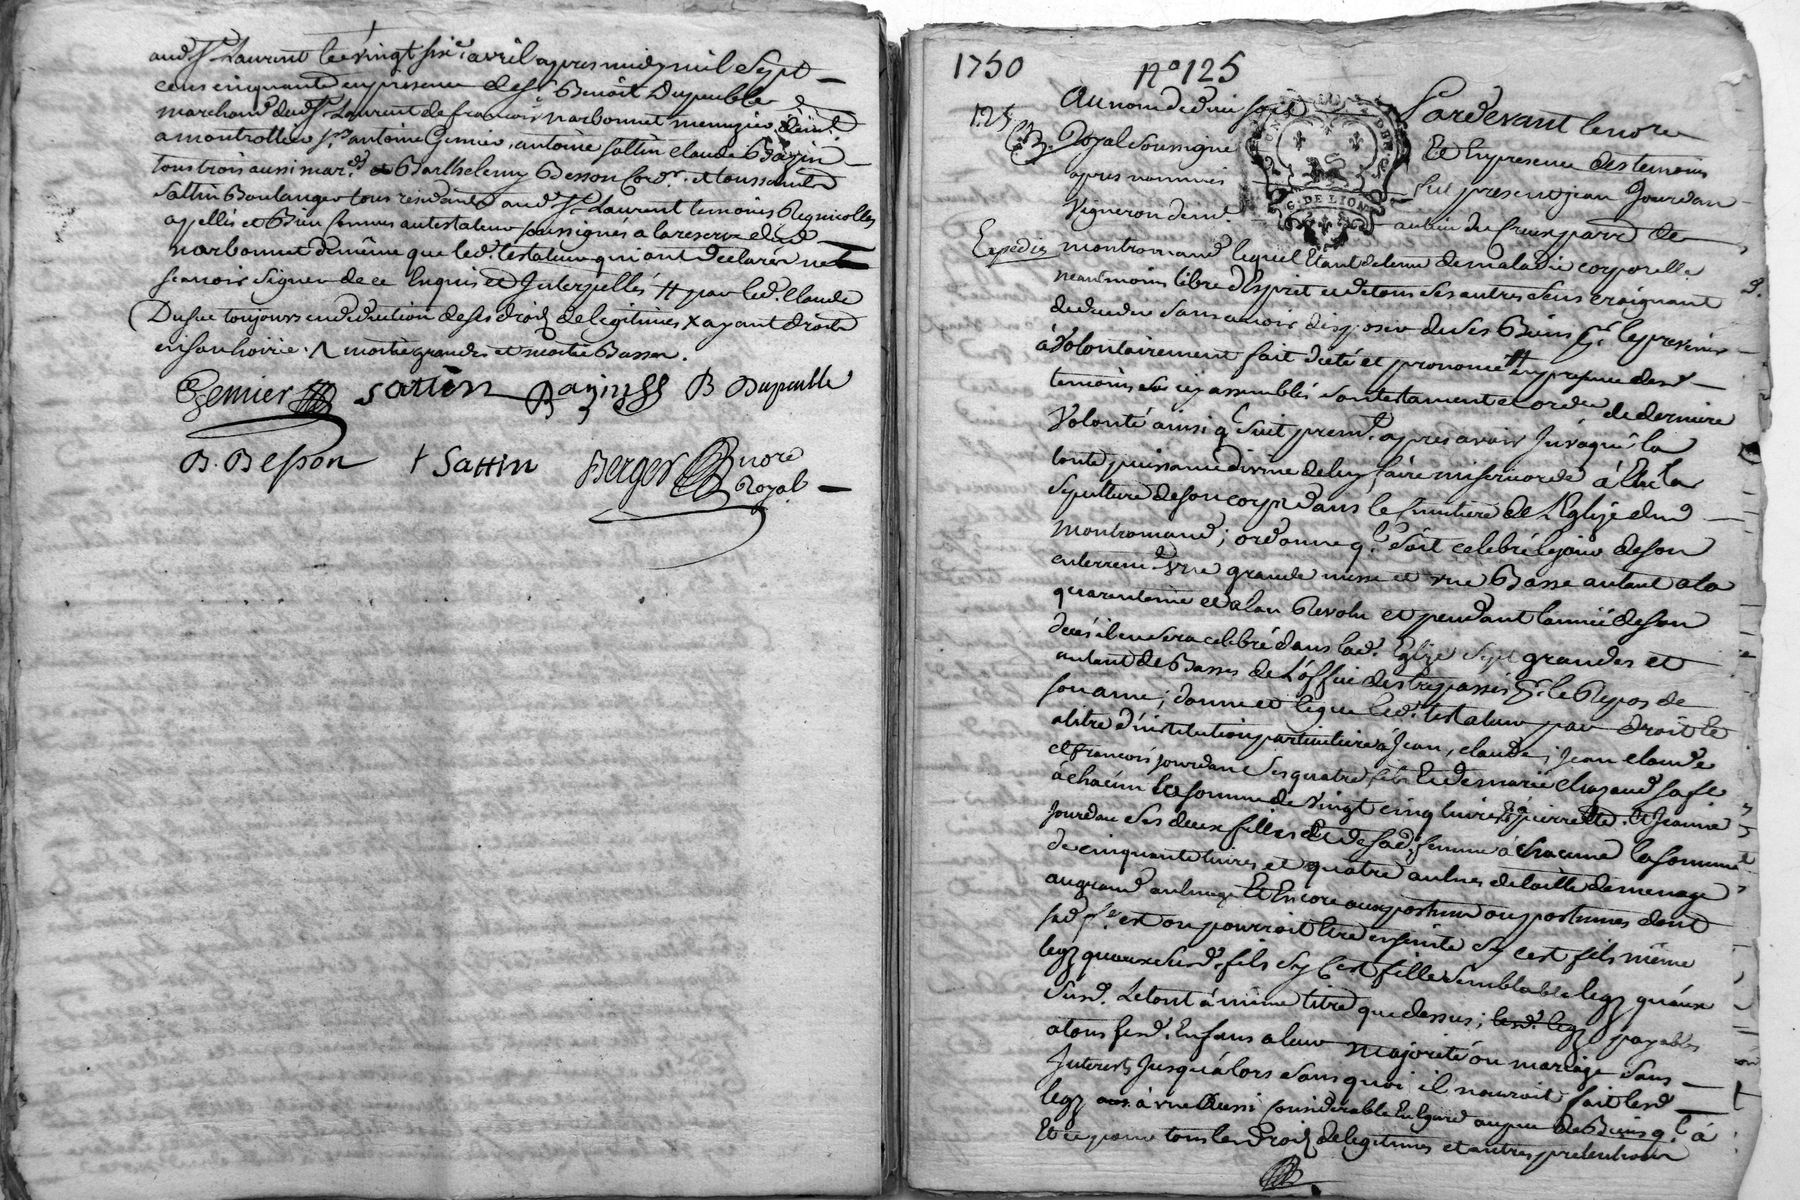 aud. St. Laurent le vingt six.e avril apres midy mil Sept
cens cinquante en presence de Sr. Benoit Dupeuble
marchand dud. St. Laurent de francois narbonnet menuzier
a montrottier Sr. antoine Gemier, antoine Sattin claude Bazin
tous trois aussi mar.ds et Barthelemy Besson Cord.r et toussaint
Sattin Boulanger tous residants aud. St. Laurent temoins Regnicolles
apellés et Bien connus au testateur soussignes a la reserve dud.
narbonnet de même que led. testateur qui ont declarés ne
scavoir signer de ce Enquis et Interpellés # par led. claude
toujours en deduction de ses droits de legitimes x ayant droits
en son hoirie. Λ moitié grandes et moitié Basses.
Gemier Sattin Bazin B Dupeuble
B. Besson t Sattin Berger nore
Royal
1750 N° 125
125
Au nom de dieu soit Pardevant le no.re
Royal Soussigné Et En presence des temoins
apres nommés fut present jean Jourdan
Vigneron dem.t au lieu du Creux parr.e de
G. DE LION
Expedié montromand lequel Etant detenu de maladie corporelle
neantmoins libre d'Esprit et de tous ses autres sens craignant
de deceder sans avoir disposé de ses Biens p.r le prevenir
à Volontairement fait dicté et prononcé # en presence desd.
temoins son testament et ordce de derniere
Volonté ainsi q.l suit prem.t apres avoir Invoqué la
toute puissance divine de luy faire misericorde à Elu la
Sepulture de son corps dans le Cimitiere de L'Eglize dud.
Montromand; ordonne q.l soit celebré le jour de son
enterrem.t Une grande messe et une Basse autant a la
quarantaine et a l'an Revolu et pendant l'année de son
decés il en sera celebré dans lad. Eglize sept grandes et
autant de Basses de L'office des trepassés p.r le Repos de
son ame; donne et legue led. testateur par droit et
a titre d'institution particuliere à Jean, claude, jean claude
et francois jourdan ses quatre fils Et de marie chazaud sa fe.
à chacun la somme de Vingt cinq livres, à pierrette Et Jeanne
Jourdan ses deux filles Et de sad. femme à chacune la somme
de cinquante livres, et quatre aulnes de toille de menage
au grand aulnage Et Encore aux postume ou postumes dont
sad. fe. est ou pourroit Etre enceinte sy c'est fils même
legz qu'aux susd. fils sy C'est fille semblable legz qu'aux
susd. Le tout à même titre que dessus; lesd. legz payables
a tous lesd. Enfans a leur Majorité ou mariage sans
Interests Jusqu'alors sans quoi il n'auroit fait lesd.
legz à une aussi considerable En Egard au peu de Biens q.l à
Et ce pour tous les droits de legitimes et autres pretentions